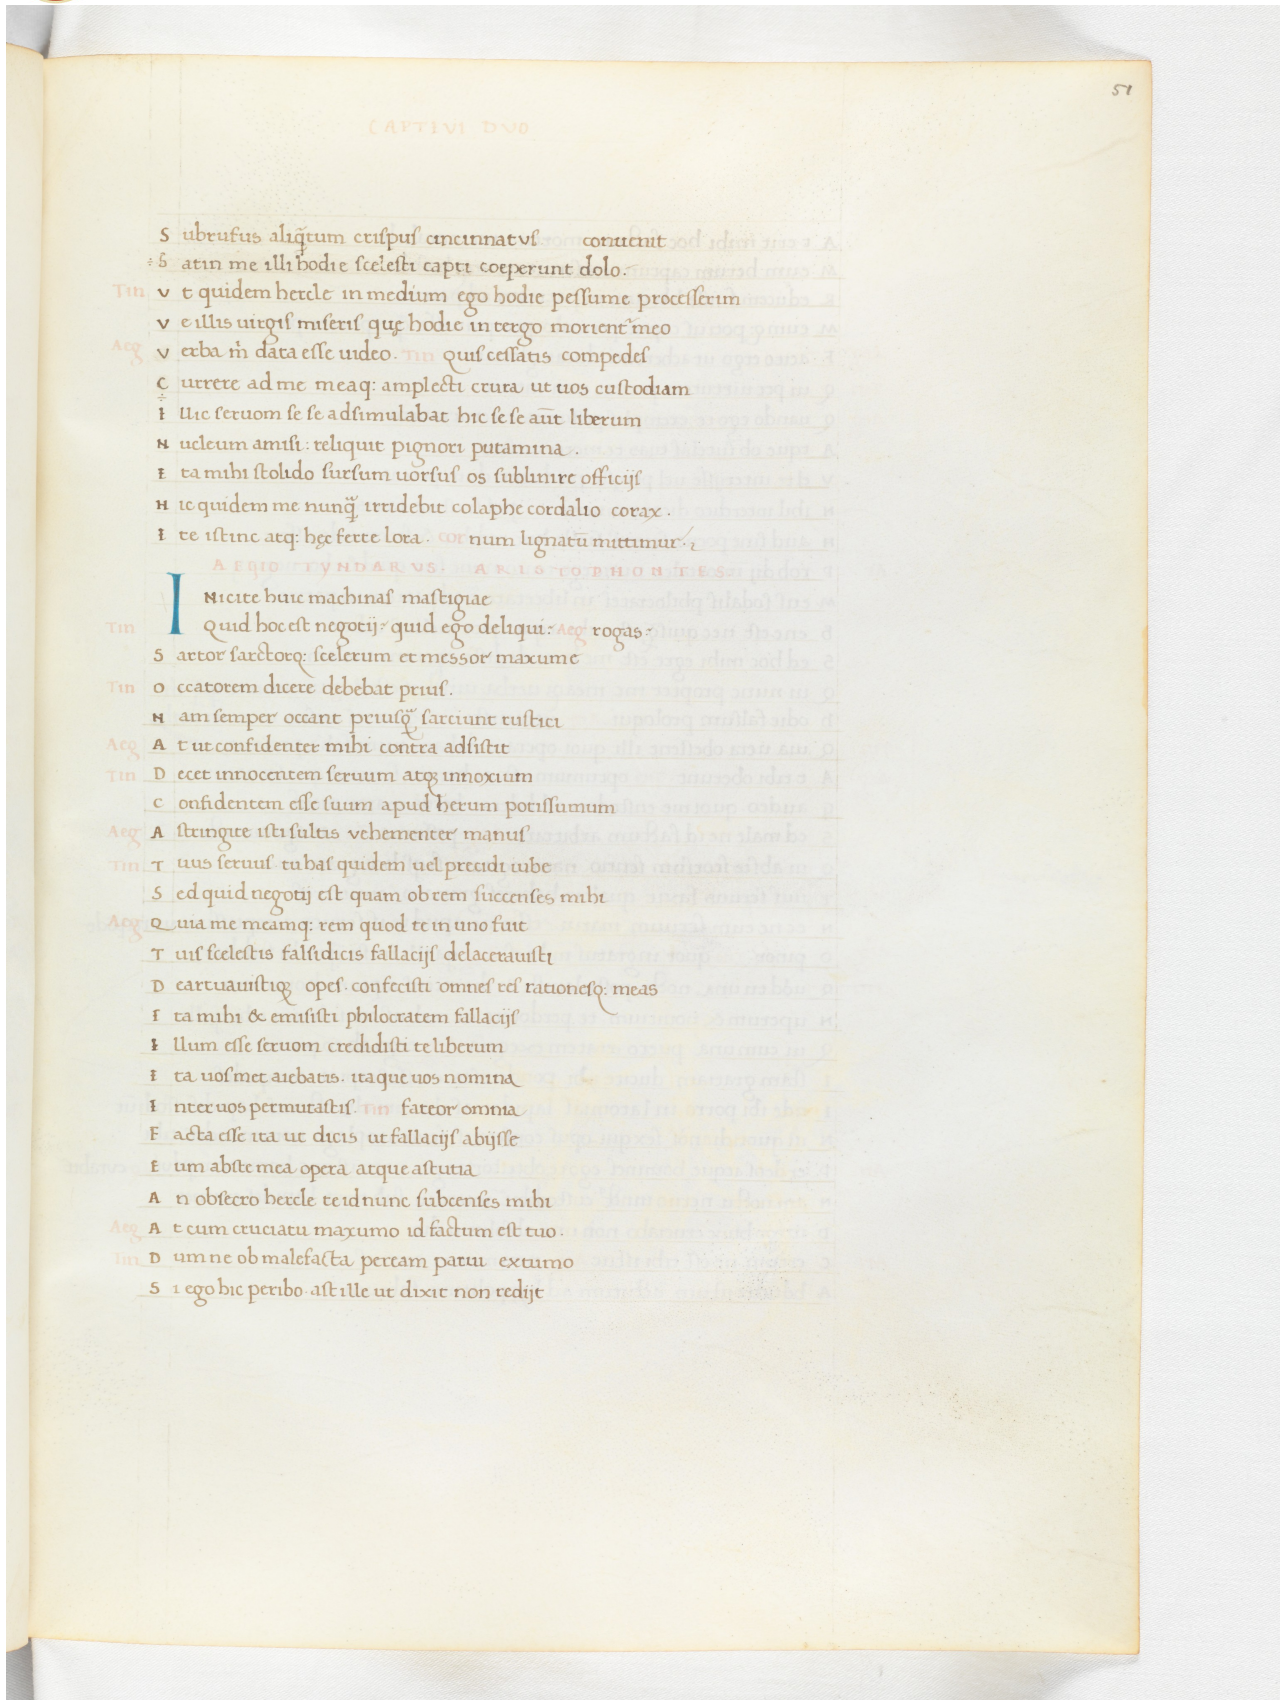 51
CAPTIVI DVO
S ubrufus aliq̃tum crispus cincinnatus conuenit
S atin me illi hodie scelesti capti coeperunt dolo.
Tin V t quidem hercle in medium ego hodie pessume processerim
V e illis uirgis miseris quę hodie in tergo morient᷑ meo
Aeg V erba m̃ data esse uideo. Tin Quis cessatis compedes
C urrere ad me meaq: amplecti crura ut uos custodiam
I llic seruom se se adsimulabat hic se se aūt liberum
N ucleum amisi: reliquit pignori putamina.
I ta mihi stolido sursum uorsus os sublinire officijs
H ic quidem me nunq̃ irridebit colaphe cordalio corax.
I te istinc atq: hęc ferte lora. cor num lignatū mittimur.
AEGIO TYNDARVS. ARISTOPHONTES
INicite huic machinas mastigiae
Tin Quid hoc est negotij. quid ego deliqui. Aeg rogas.
S artor sarctorq: scelerum et messor maxume
Tin O ccatorem dicere debebat prius.
N am semper occant priusq̃ sarciunt rustici
Aeg A t ut confidenter mihi contra adsistit
Tin D ecet innocentem seruum atq; innoxium
C onfidentem esse suum apud herum potissumum
Aeg A stringite isti sultis vehementer manus
Tin T uus seruus tu has quidem uel precidi iube
S ed quid negotij est quam ob rem succenses mihi
Aeg Q uia me meamq: rem quod te in uno fuit
T uis scelestis falsidicis fallacijs delacerauisti
D eartuauistiq; opes. confecisti omnes res rationesq: meas
I ta mihi & emisisti philocratem fallacijs
I llum esse seruom credidisti te liberum
I ta uosmet aiebatis. itaque uos nomina
I nter uos permutastis. Tin fateor omnia
F acta esse ita ut dicis ut fallacijs abijsse
E um abste mea opera atque astutia
A n obsecro hercle te id nunc subcenses mihi
Aeg A t cum cruciatu maxumo id factum est tuo.
Tin D um ne ob malefacta peream parui extumo
S i ego hic peribo. ast ille ut dixit non redijt